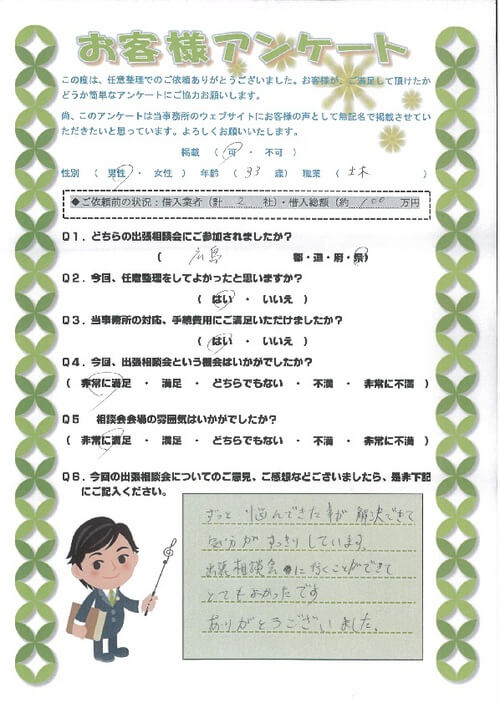 お客様アンケート
この度は、任意整理でのご依頼ありがとうございました。お客様が、ご満足して頂けたか
どうか簡単なアンケートにご協力お願いします。
尚、このアンケートは当事務所のウェブサイトにお客様の声として無記名で掲載させてい
ただきたいと思っています。よろしくお願いいたします。
掲載 ( 可 ・ 不可 )
性別 ( 男性 ・ 女性 ) 年齢 ( 33 歳) 職業 ( 土木 )
◆ご依頼前の状況:借入業者(計 2 社)・借入総額(約 100 万円
Q1.どちらの出張相談会にご参加されましたか?
( 広島 都・道・府・県)
Q2.今回、任意整理をしてよかったと思いますか?
( はい ・ いいえ )
Q3.当事務所の対応、手続費用にご満足いただけましたか?
( はい ・ いいえ )
Q4.今回、出張相談会という機会はいかがでしたか?
( 非常に満足 ・ 満足 ・ どちらでもない ・ 不満 ・ 非常に不満 )
Q5 相談会会場の雰囲気はいかがでしたか?
( 非常に満足 ・ 満足 ・ どちらでもない ・ 不満 ・ 非常に不満 )
Q6.今回の出張相談会についてのご意見、ご感想などございましたら、是非下記
にご記入ください。
ずっと 悩んできた事が 解決できて
気分がすっきりしています。
出張相談会に行くことができて
とてもよかったです
ありがとうございました。